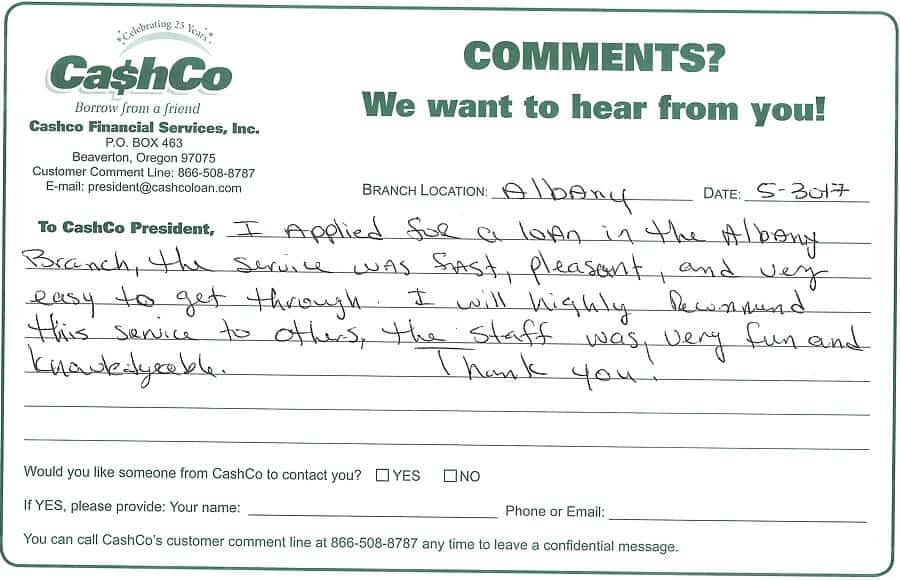 *Celebrating 25 Years*
Ca$hCo
Borrow from a friend
Cashco Financial Services, Inc.
P.O. BOX 463
Beaverton, Oregon 97075
Customer Comment Line: 866-508-8787
E-mail: president@cashcoloan.com
COMMENTS?
We want to hear from you!
BRANCH LOCATION: Albany DATE: 5-30-17
To CashCo President, I Applied for a loan in the Albany
Branch, the service was fast, pleasant, and very
easy to get through. I will highly Recommend
this service to others, the staff was, very fun and
knowledgeable. Thank you!
Would you like someone from CashCo to contact you? ☐ YES ☐ NO
If YES, please provide: Your name: Phone or Email:
You can call CashCo's customer comment line at 866-508-8787 any time to leave a confidential message.